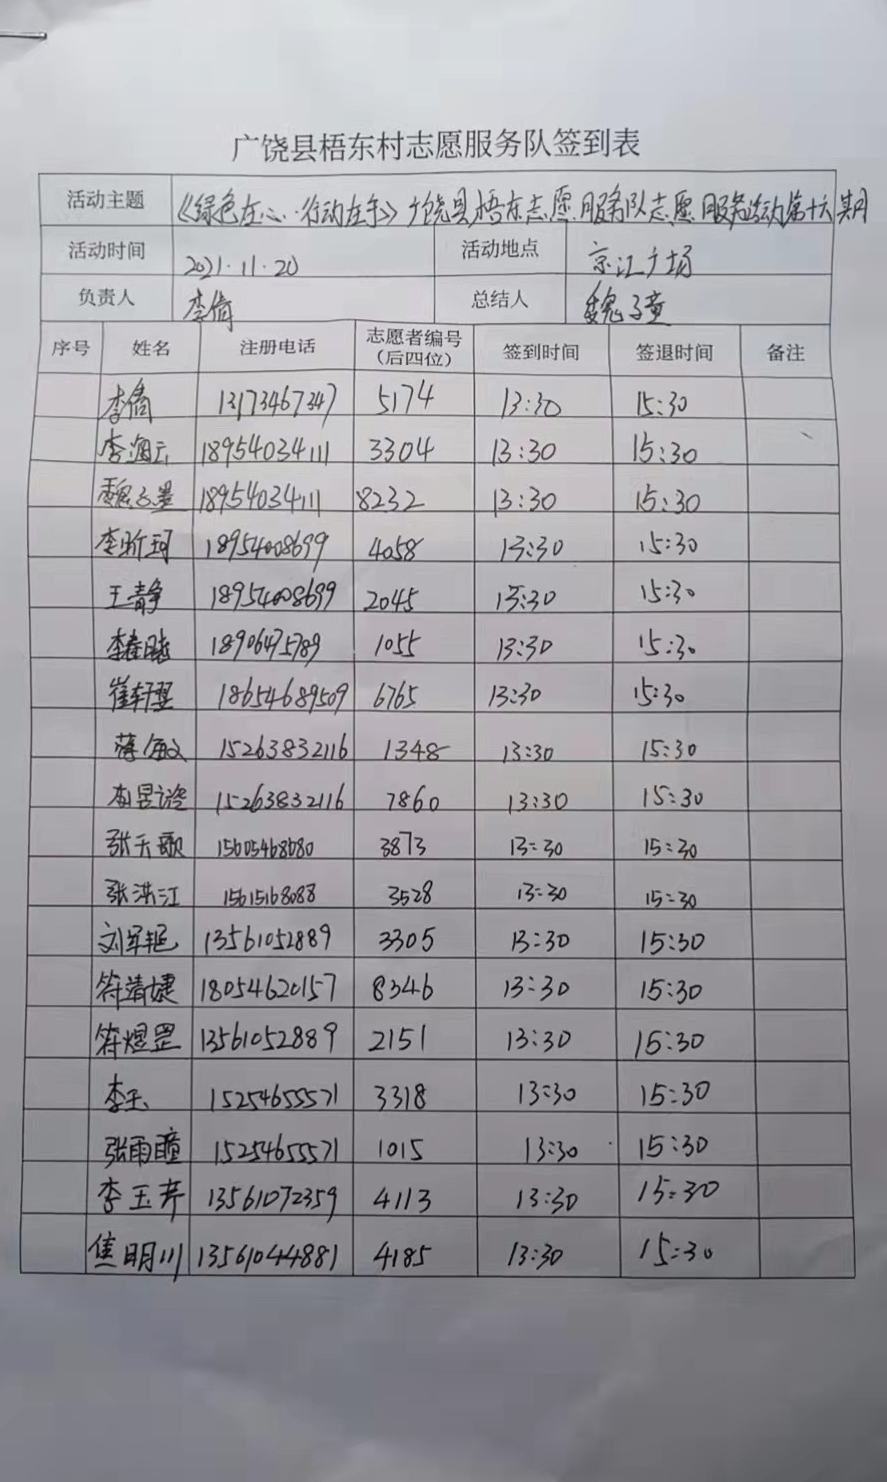 广饶县梧东村志愿服务队签到表
活动主题 《绿色在心·行动在手》广饶县梧东志愿服务队志愿服务活动第十六期
活动时间 2021.11.20 活动地点 京江广场
负责人 李倩 总结人 魏子童
序号 姓名 注册电话 志愿者编号（后四位） 签到时间 签退时间 备注
李倩 13173467347 5174 13:30 15:30
李海云 18954034111 3304 13:30 15:30
魏 18954034111 8232 13:30 15:30
李昕珂 18954008699 4058 13:30 15:30
王静 18954008699 2045 13:30 15:30
李春晓 18906475789 1055 13:30 15:30
崔轩 18654689509 6765 13:30 15:30
蒋海文 15263832116 1348 13:30 15:30
昱 15263832116 7860 13:30 15:30
张天歌 15605468080 3873 13:30 15:30
张洪江 15615168088 3528 13:30 15:30
刘军艳 13561052889 3305 13:30 15:30
符清婕 18054620157 8346 13:30 15:30
符煜罡 13561052889 2151 13:30 15:30
李玉 15254655571 3318 13:30 15:30
张雨瞳 15254655571 1015 13:30 15:30
李玉芹 13561072359 4113 13:30 15:30
焦明川 13561044881 4185 13:30 15:30